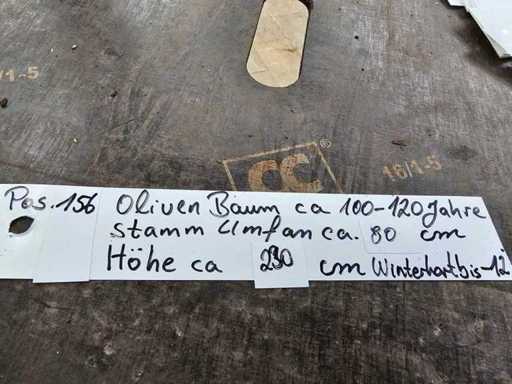 16/1-5
CC®
16/1-5
Pos. 156 Oliven Baum ca 100-120 Jahre
Stamm Umfan ca. 80 cm
Höhe ca 230 cm Winterhart bis -12°